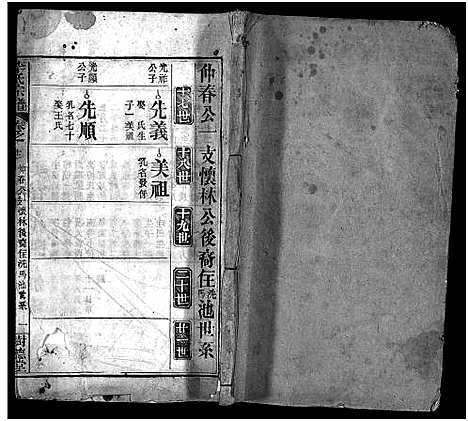 仲春公一支懷林公後裔住洗馬池世系
十七世
十八世
十九世
二十世
廿一世
光祚公子
先義
娶氏生子一美祖
美祖
乳名發保
光顯公子
先順
乳名七十
娶王氏
氏宗譜
仲春公懷林後裔住洗馬池世系
一